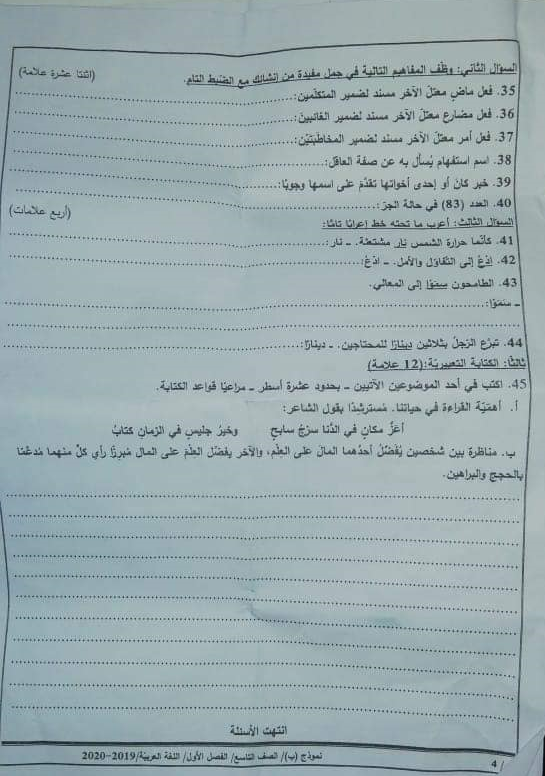 السؤال الثاني: وظّف المفاهيم التالية في جمل مفيدة من إنشائك مع الضبط التام. (اثنتا عشرة علامة)
35. فعل ماضٍ معتلّ الآخر مسند لضمير المتكلّمين:
36. فعل مضارع معتلّ الآخر مسند لضمير الغائبين:
37. فعل أمر معتلّ الآخر مسند لضمير المخاطبَتَيْن:
38. اسم استفهام يُسأل به عن صفة العاقل:
39. خبر كان أو إحدى أخواتها تقدّم على اسمها وجوبًا:
40. العدد (83) في حالة الجرّ:
السؤال الثالث: أعرب ما تحته خط إعرابًا تامًا: (أربع علامات)
41. كأنّما حرارة الشمس نار مشتعلة. - نار:
42. ادْعُ إلى التّفاؤل والأمل. - ادْعُ:
43. الطامحون سمَوْا إلى المعالي.
- سمَوْا:
44. تبرّع الرّجلُ بثلاثين دينارًا للمحتاجين. - دينارًا:
ثالثًا: الكتابة التعبيريّة: (12 علامة)
45. اكتب في أحد الموضوعين الآتيين - بحدود عشرة أسطر - مراعيًا قواعد الكتابة.
أ. أهميّة القراءة في حياتنا. مُسترشدًا بقول الشاعر:
أعَزُّ مكانٍ في الدُّنا سرجُ سابحٍ وخيرُ جليسٍ في الزمانِ كتابُ
ب. مناظرة بين شخصين يُفَضِّلُ أحدُهما المالَ على العِلْمِ، والآخر يفضّل العِلْمَ على المال مُبرزًا رأي كلٍّ منهما مُدعّمًا
بالحجج والبراهين.
انتهت الأسئلة
نموذج (ب)/ الصف التاسع/ الفصل الأول/ اللغة العربيّة/2019-2020
4/